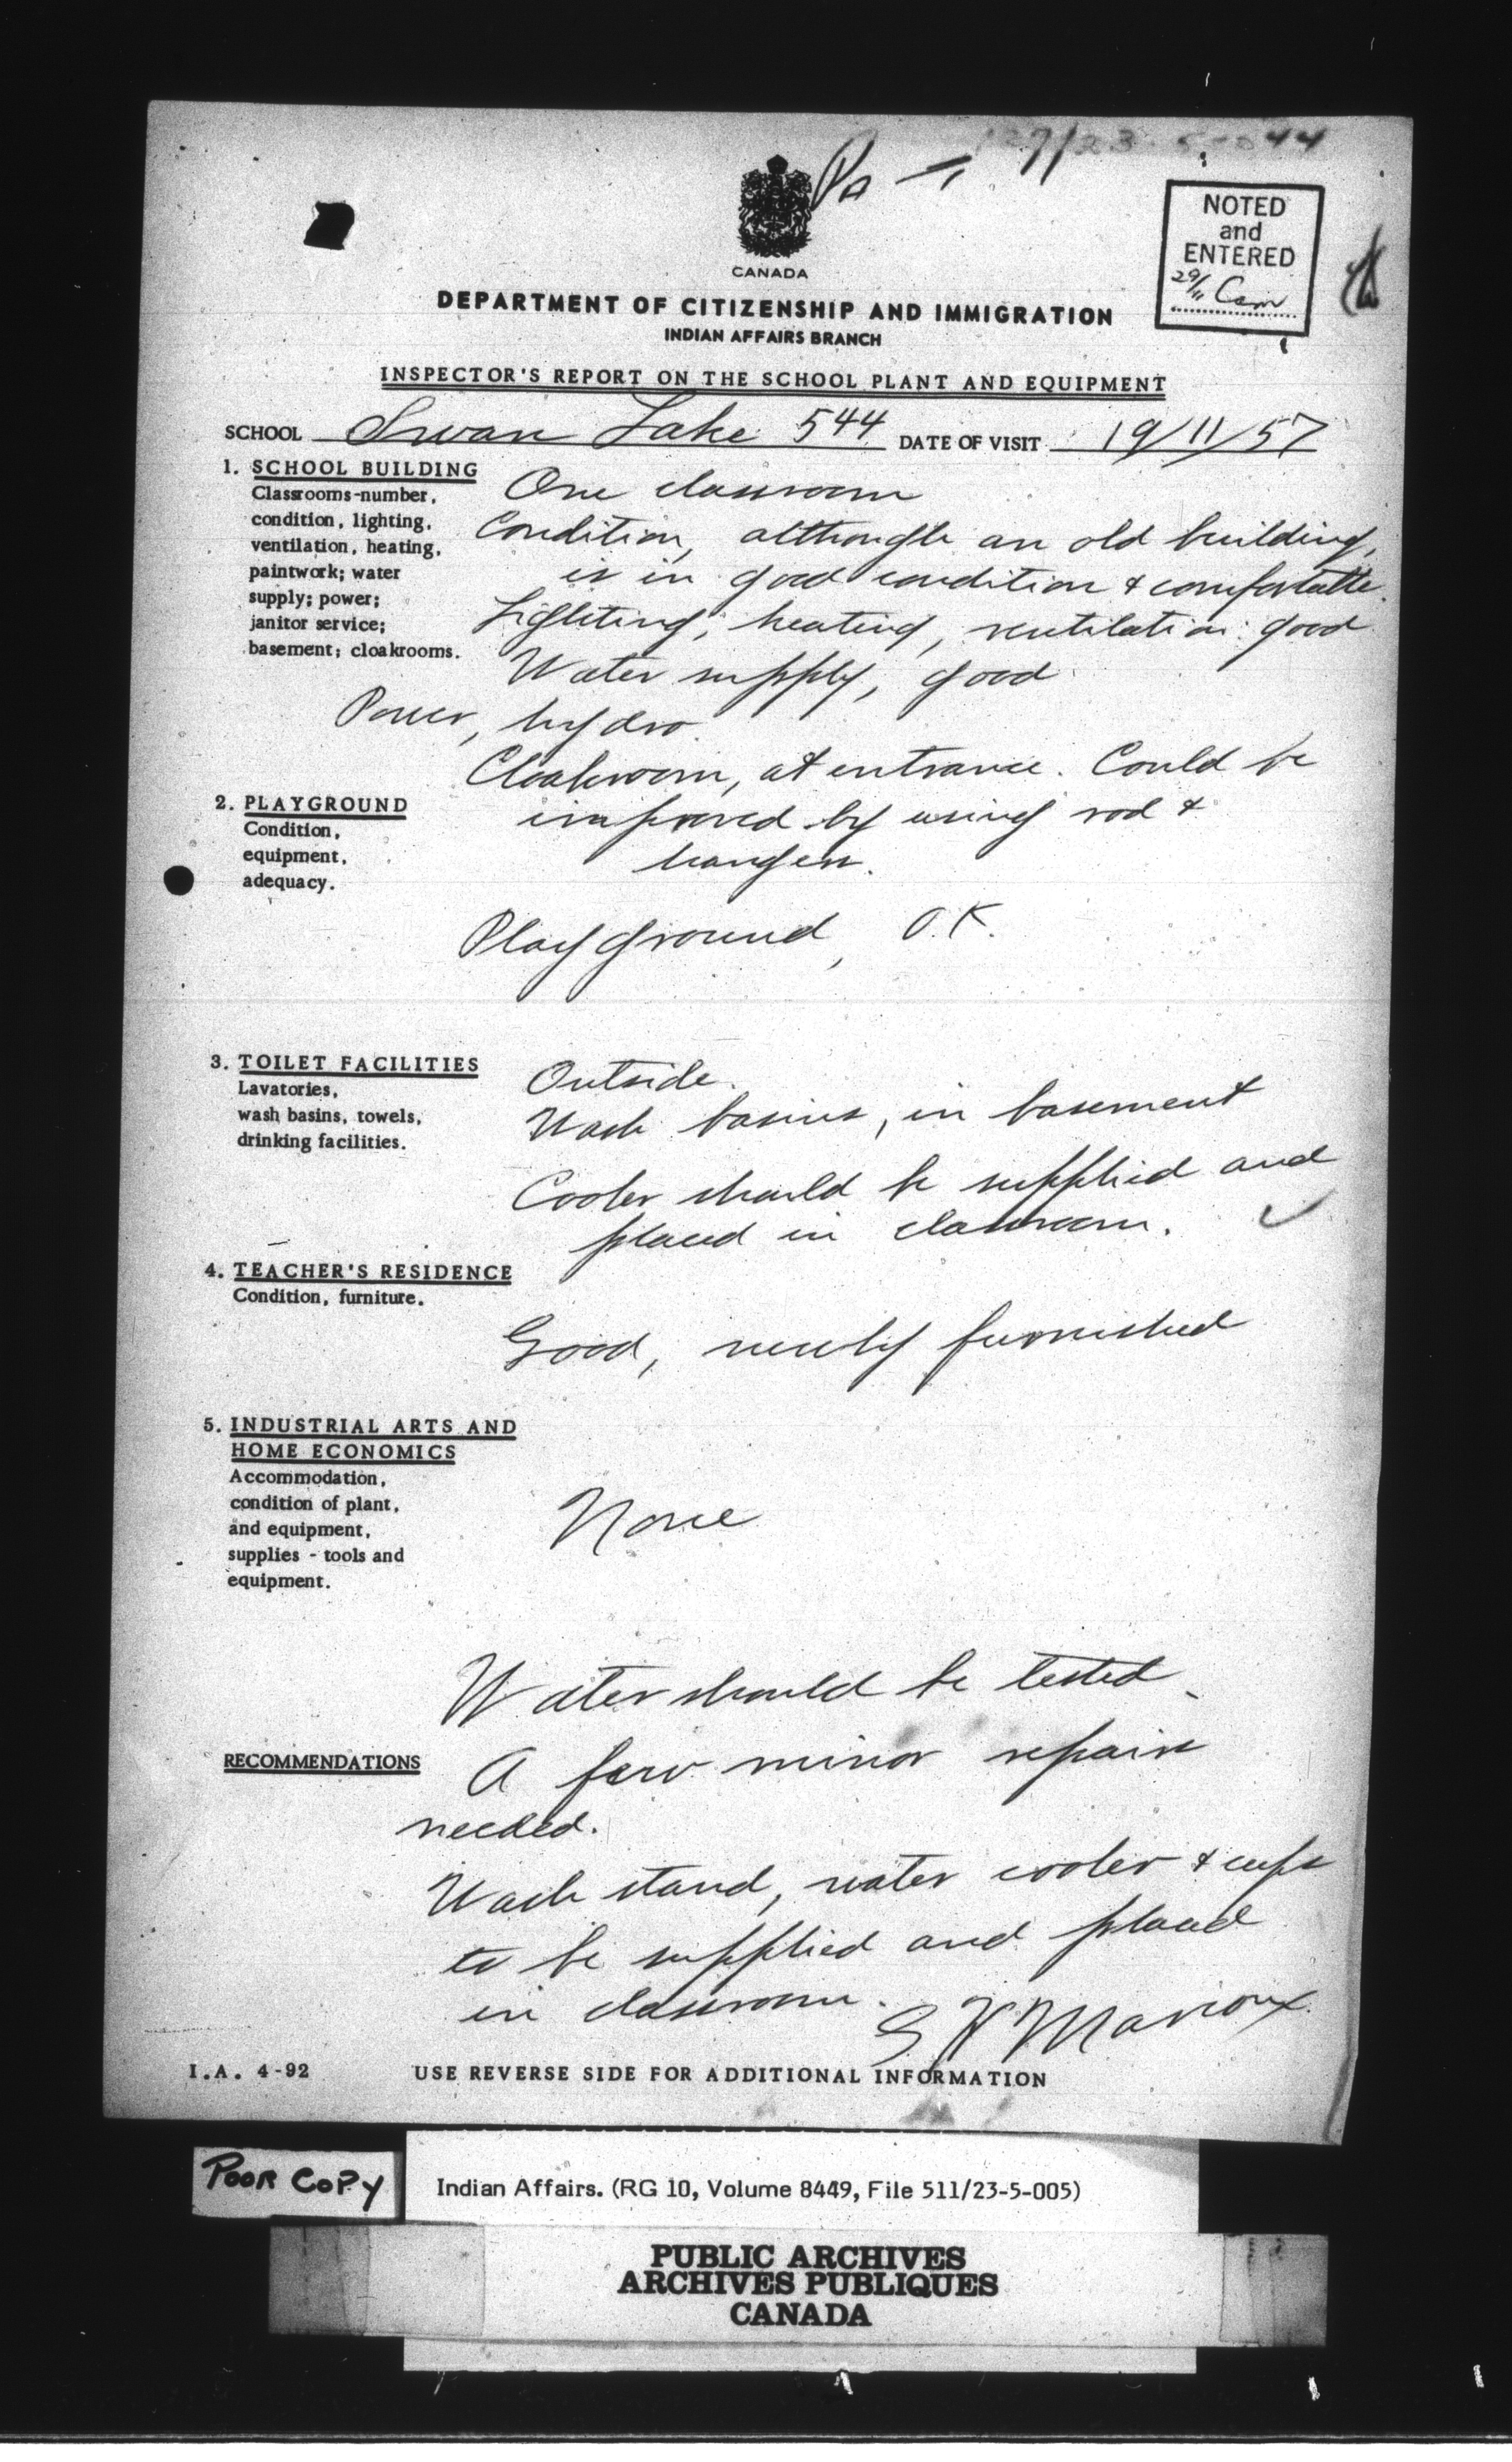 44
CANADA
NOTED
and
ENTERED
29/11
DEPARTMENT OF CITIZENSHIP AND IMMIGRATION
INDIAN AFFAIRS BRANCH
INSPECTOR'S REPORT ON THE SCHOOL PLANT AND EQUIPMENT
SCHOOL Swan Lake 544 DATE OF VISIT 19/11/57
1. SCHOOL BUILDING
Classrooms-number,
condition, lighting,
ventilation, heating,
paintwork; water
supply; power;
janitor service;
basement; cloakrooms.
One classroom
Condition, although an old building,
is in good condition & comfortable.
Lighting, heating, ventilation: good
Water supply, good
Power, hydro.
Cloakroom, at entrance. Could be
improved by using rod &
hangers.
2. PLAYGROUND
Condition,
equipment,
adequacy.
Playground, O.K.
3. TOILET FACILITIES
Lavatories,
wash basins, towels,
drinking facilities.
Outside.
Wash basins, in basement
Cooler should be supplied and
placed in classroom. ✓
4. TEACHER'S RESIDENCE
Condition, furniture.
Good, newly furnished
5. INDUSTRIAL ARTS AND
HOME ECONOMICS
Accommodation,
condition of plant,
and equipment,
supplies - tools and
equipment.
None
Water should be tested
RECOMMENDATIONS
A few minor repairs
needed.
Wash stand, water cooler & cups
to be supplied and placed
in classroom.
I.A. 4-92 USE REVERSE SIDE FOR ADDITIONAL INFORMATION
POOR COPY
Indian Affairs. (RG 10, Volume 8449, File 511/23-5-005)
PUBLIC ARCHIVES
ARCHIVES PUBLIQUES
CANADA